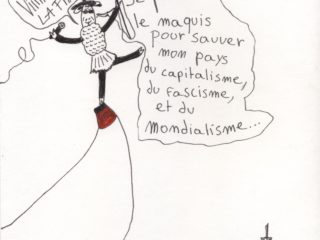 LA
le maquis
pour sauver
mon pays
du capitalisme,
du fascisme,
et du
mondialisme...